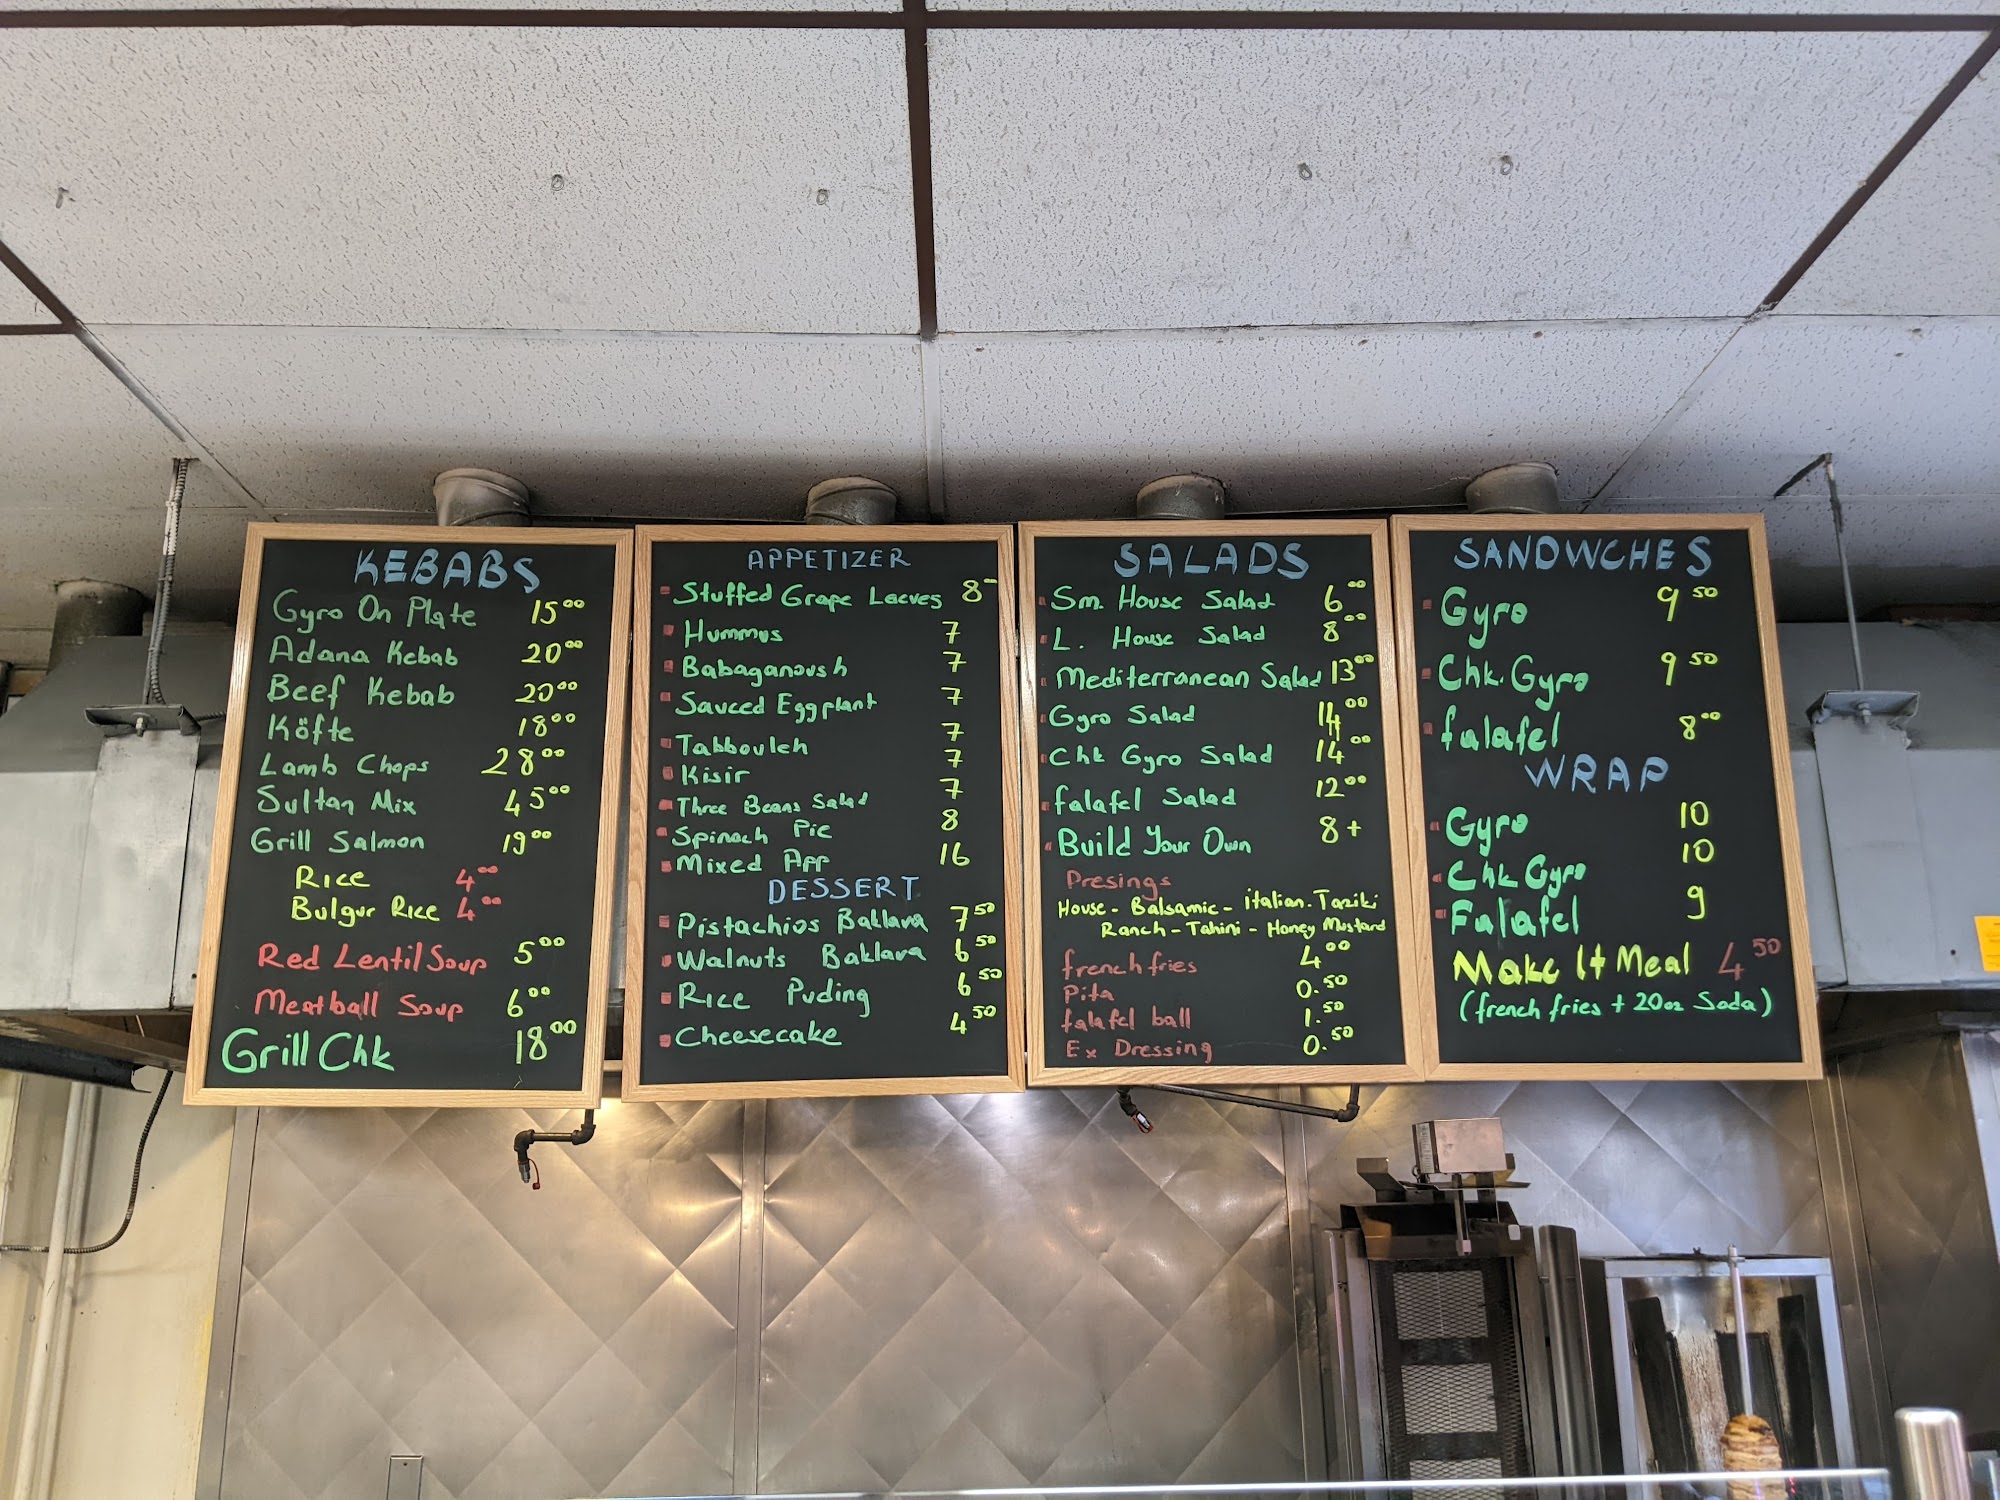 KEBABS
Gyro On Plate 15⁰⁰
Adana Kebab 20⁰⁰
Beef Kebab 20⁰⁰
Köfte 18⁰⁰
Lamb Chops 28⁰⁰
Sultan Mix 45⁰⁰
Grill Salmon 19⁰⁰
Rice 4⁰⁰
Bulgur Rice 4⁰⁰
Red Lentil Soup 5⁰⁰
Meatball Soup 6⁰⁰
Grill Chk 18⁰⁰
APPETIZER
Stuffed Grape Leeves 8
Hummus 7
Babaganoush 7
Sauced Eggplant 7
Tabbouleh 7
Kisir 7
Three Beans Salad 7
Spinach Pie 8
Mixed App 16
DESSERT
Pistachios Baklava 7⁵⁰
Walnuts Baklava 6⁵⁰
Rice Puding 6⁵⁰
Cheesecake 4⁵⁰
SALADS
Sm. House Salad 6⁰⁰
L. House Salad 8⁰⁰
Mediterranean Salad 13⁰⁰
Gyro Salad 14⁰⁰
Chk Gyro Salad 14⁰⁰
falafel Salad 12⁰⁰
Build Your Own 8+
Dresings
House - Balsamic - italian. Taziki
Ranch - Tahini - Honey Mustard
french fries 4⁰⁰
Pita 0.⁵⁰
falafel ball 1.⁵⁰
Ex Dressing 0.⁵⁰
SANDWCHES
Gyro 9⁵⁰
Chk. Gyro 9⁵⁰
falafel 8⁰⁰
WRAP
Gyro 10
Chk Gyro 10
Falafel 9
Make It Meal 4⁵⁰
(french fries + 20oz Soda)